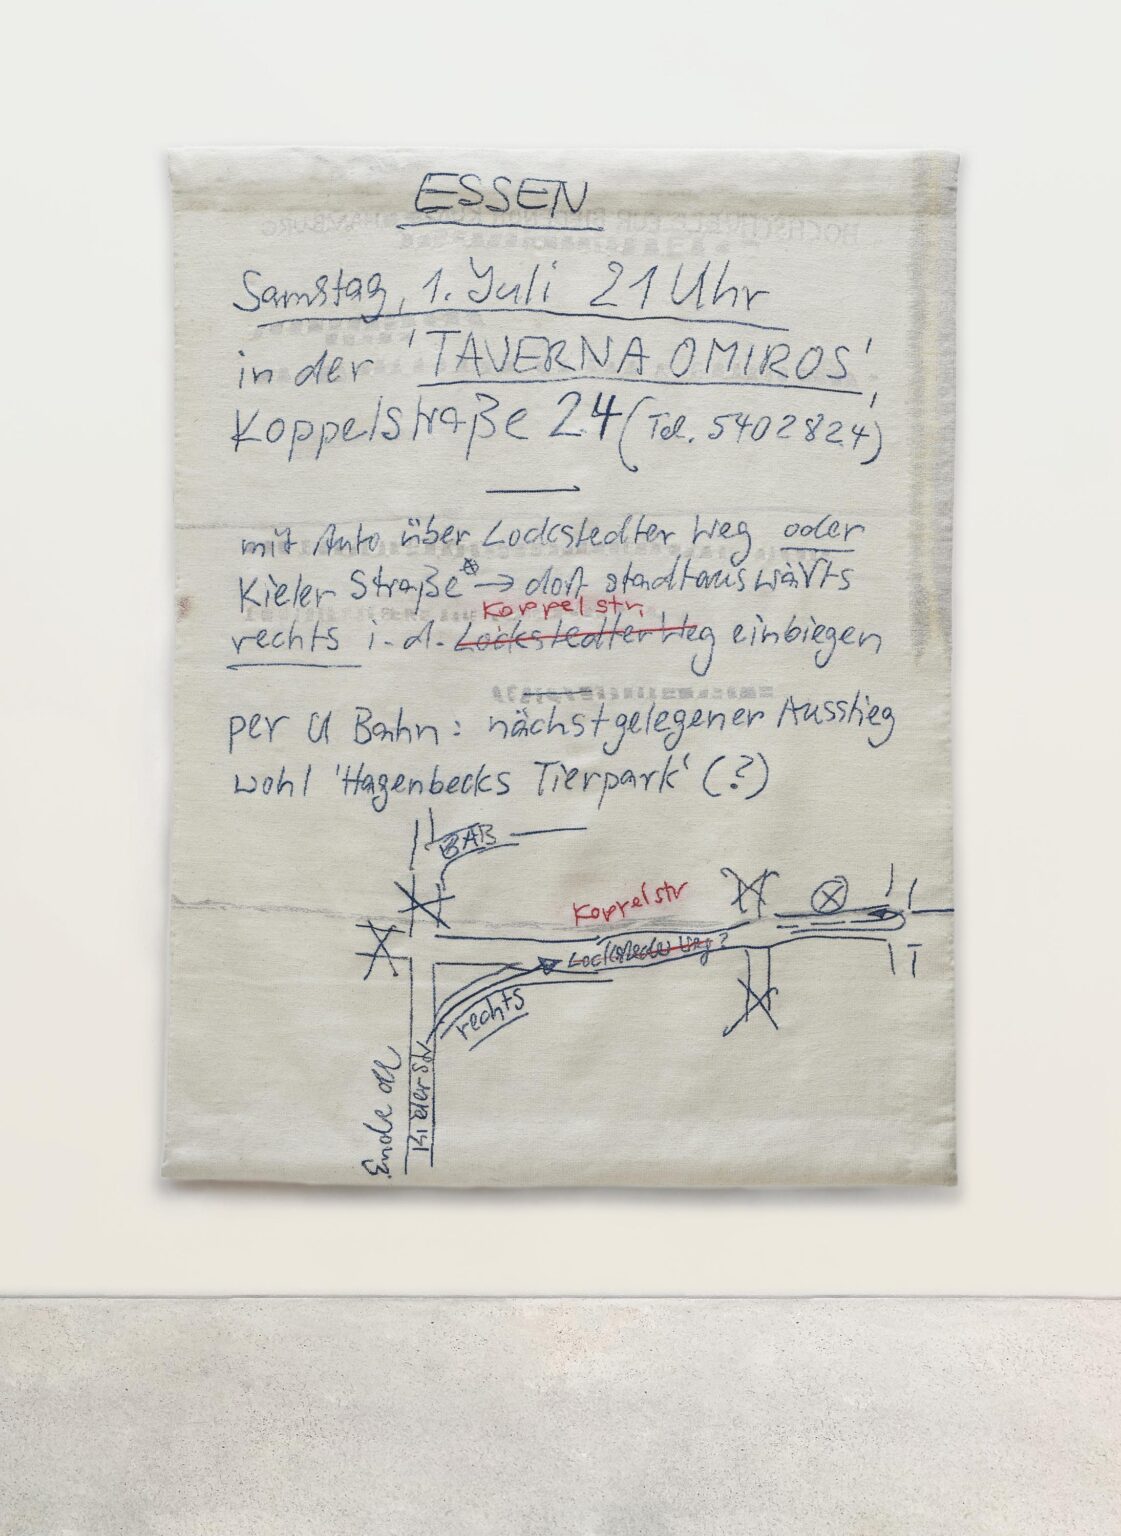 ESSEN
Samstag, 1. Juli 21 Uhr
in der 'TAVERNA OMIROS',
Koppelstraße 24 (Tel. 5402824)
mit Auto über Lockstedter Weg oder
Kieler Straße* → dort stadtauswärts
Koppelstr.
rechts i. d. Lockstedter Weg einbiegen
per U Bahn: nächstgelegener Ausstieg
wohl 'Hagenbecks Tierpark' (?)
BAB
Koppelstr
Lockstedter Weg?
rechts
Ende der
Kieler Str